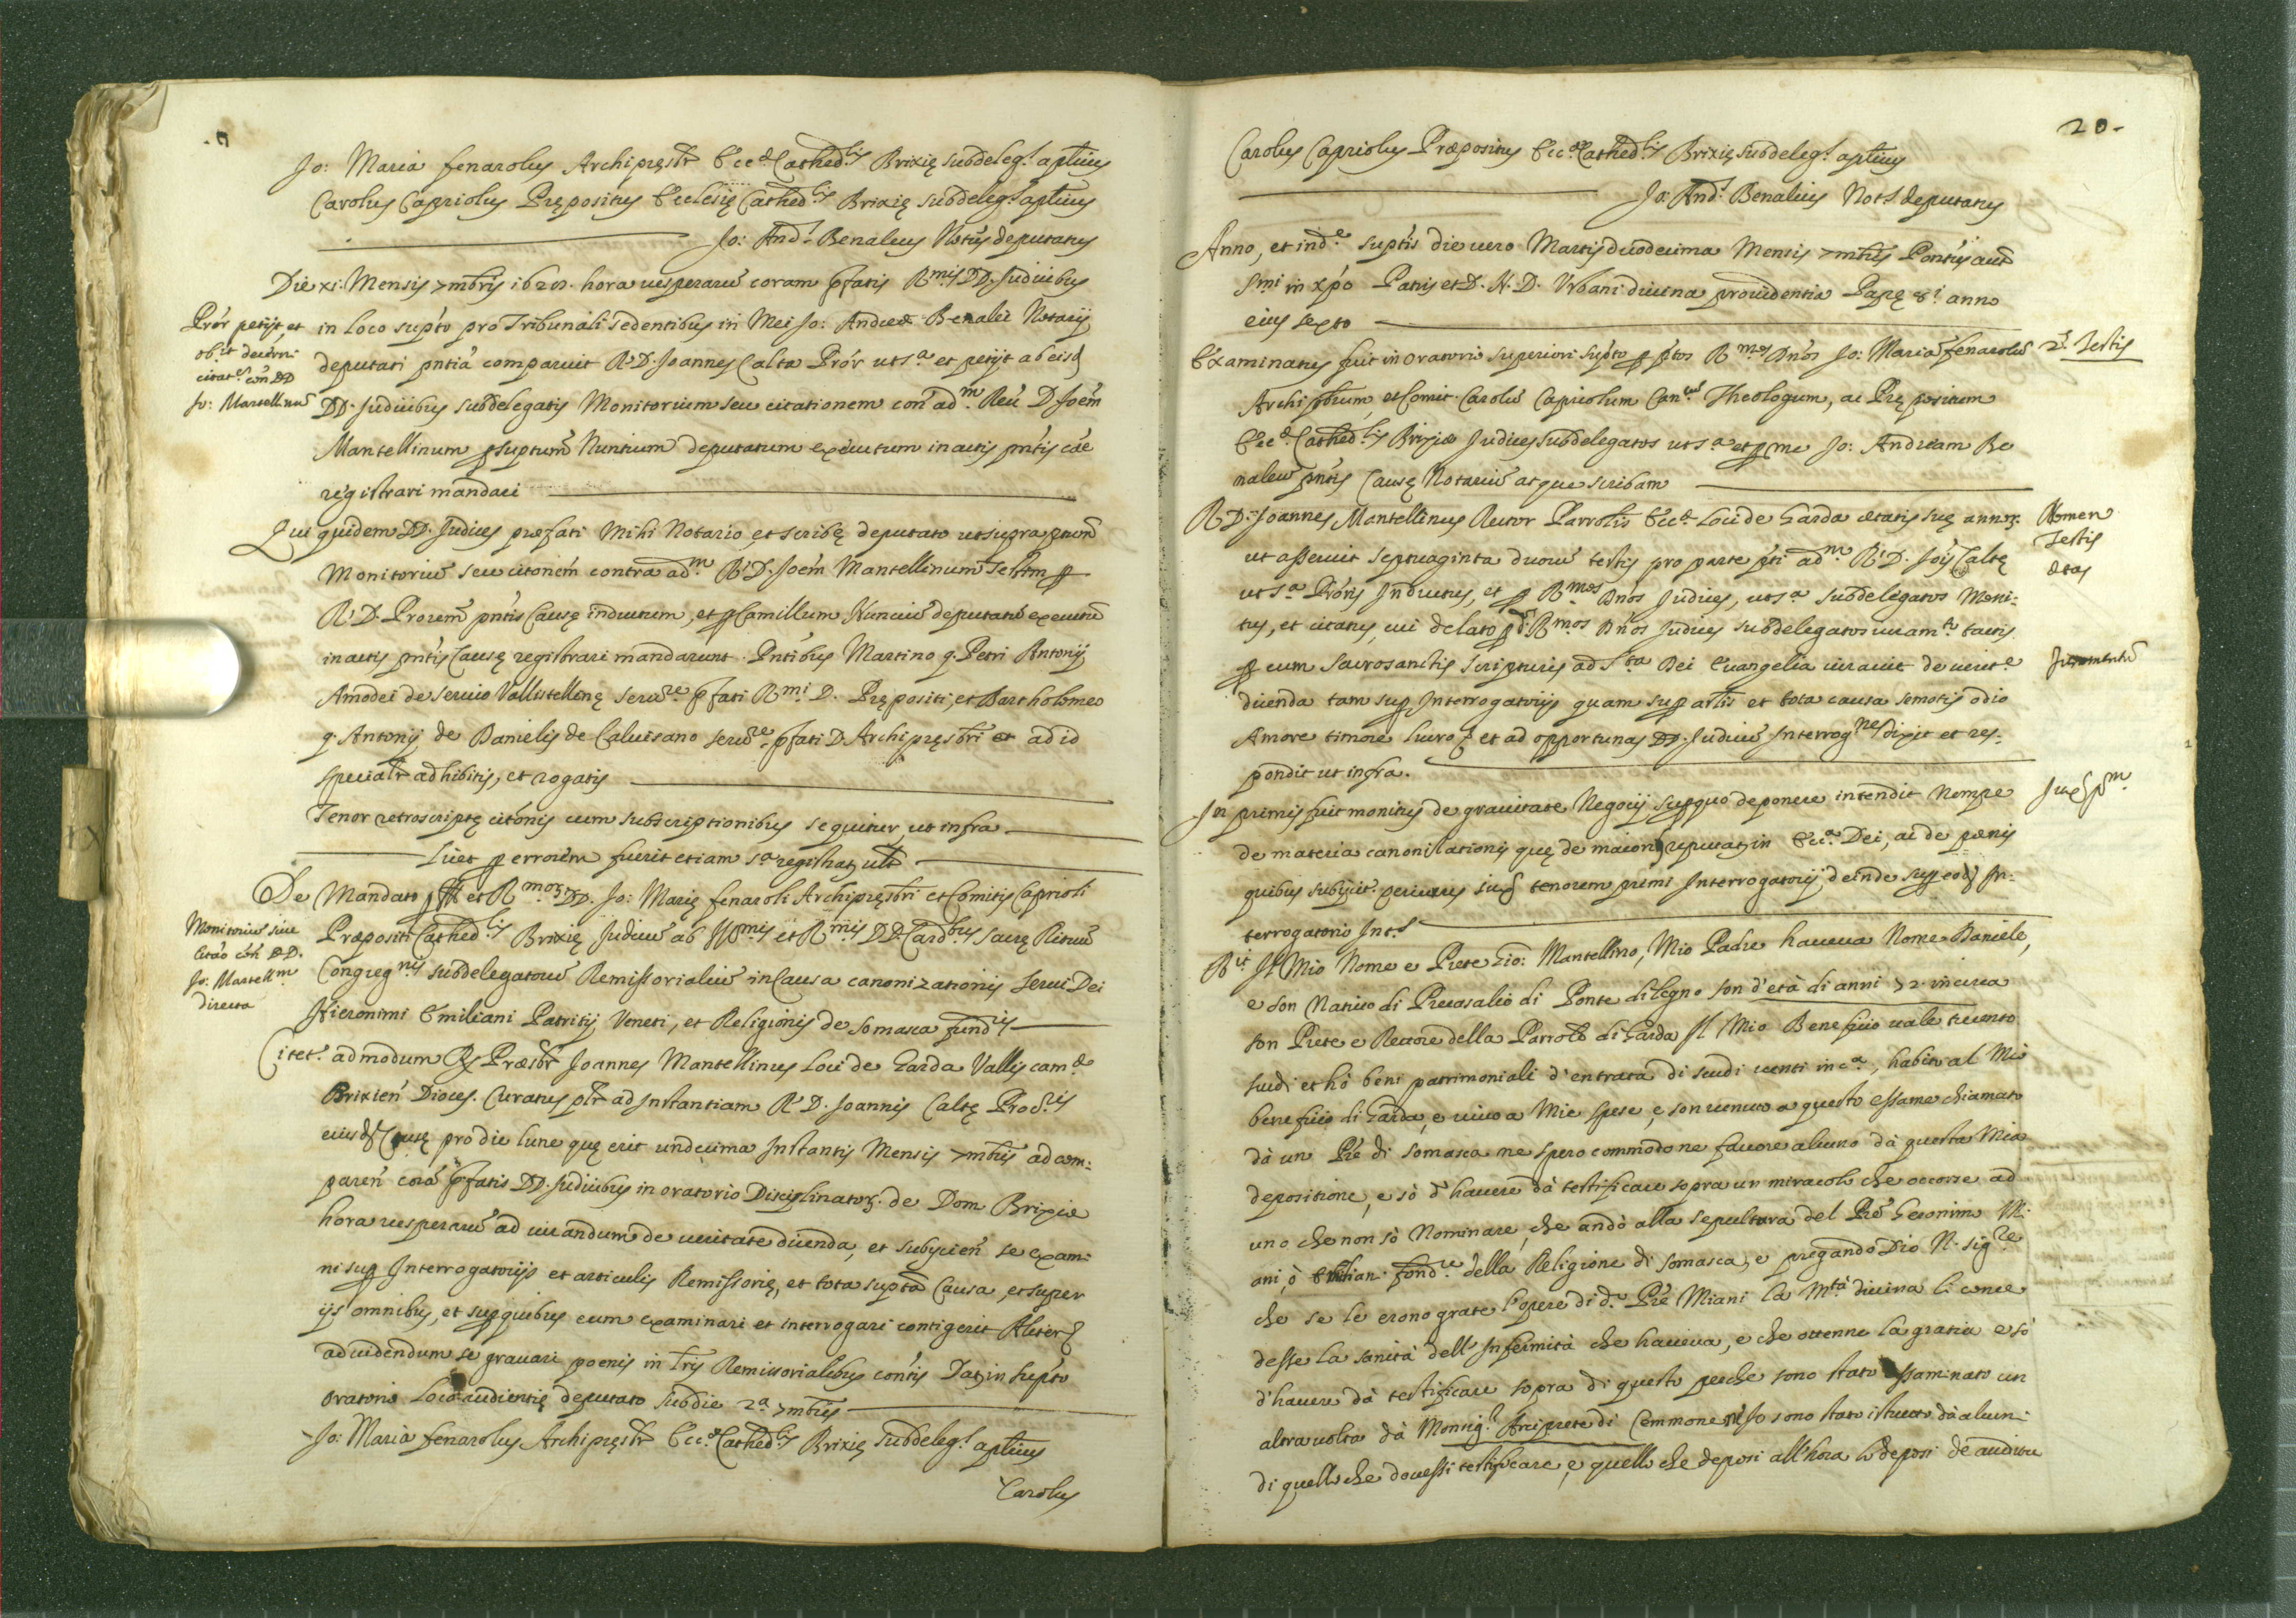 Jo: Maria fenarolus Archipręsbr Ecc.ę Cathed.lis Brixię subdeleg.s aplicus
Carolus Capriolus Prępositus Ecclesię Cathed.lis Brixię subdeleg.s aplicus
Jo: And.s Benaleus Notus deputatus
Die xi: Mensis 7mbris 1628. hora uesperarū coram pfatis R.mis DD. Judicibus
Prór petijt et
ob.it decerni
citat.em cōn DD
Jo: Mantellinū
in loco supto pro Tribunali sedentibus in Mei Jo: Andreæ Benalei Notarij
deputati pntia comparuit R. D. Joannes Calta Prór ut s.a et petijt ab eisd
DD. Judicibus subdelegatis Monitorium seu citationem con ad.m Reu D Joem
Mantellinum p suptum Nuntium deputatum exeutum in actis pntis cae
registrari mandari
Qui quidem DD. Judices præfati Mihi Notario, et scribę deputato ut supra
Monitoriu seu citonem contra ad.m R. D. Joem Mantellinum Testem p
R. D. Prorem pntis Causę inductum, et p Camillum Nunciu deputatu executu
in actis pntis Causę registrari mandarunt. Pntibus Martino q. Petri Antonij
Amodei de seruio Vallistellinę seru.re pfati R.mi D. Prępositi, et Bartholomeo
q. Antonij de Danielis de Caluisano seru.re pfati D. Archipręsbri et ad id
specialr adhibitis, et rogatis
Tenor retroscriptę citonis cum subscriptionibus sequitur, ut infra
licet p errorem fuerit etiam s.a registrat, ult
De Mandato et R.mor DD. Jo: Marię fenaroli Archipręsbri et Comitis Caprioli
Monitoriu siue
Citao con DD.
Jo: Mantell.m
directa
Præpositi Cathed.lis Brixię Judicu ab Ill.mis et R.mis DD. Card.bus sacrę Rituu
Congreg.nis subdelegatoru Remissorialiu in Causa canonizationis serui Dei
Hieronimi Emiliani Patritij Veneti, et Religionis de somasca fund.ris
Citet.r admodum R. Præsbr Joannes Mantellinus Loci de Garda Vallis cam.æ
Brixien Dioces. Curatus pr ad Instantiam R. D. Joannis Caltę Proc.ris
eiusd Causę pro die lune quę erit undecima Instantis Mensis 7mbris ad com:
paren corā pfatis DD. Judicibus in oratorio Disciplinator de Dom Brixiæ
hora uesperarū ad iurandum de ueritate dicenda, et subijcien se exami
ni sup Interrogatorijs et articulis Remissorię, et tota supta Causa, et super
ijs omnibus, et sup quibus eum examinari et interrogari contigerit Aliter
ad uidendum se grauari poenis in lris Remissorialibus contis Dat in supto
oratorio Loco audientię deputato sub die 2.a 7mbris
Jo: Maria fenarolus Archipręsbr Ecc.ę Cathed.lis Brixię subdeleg.s aplicus
Carolus
20.
Carolus Capriolus Præpositus Ecc.æ Cathed.lis Brixię subdeleg.s aplicus
Jo: And.s Benalius Not.s deputatus
Anno, et ind.e suptis die uero Martis duodecima Mensis 7mbris Pontus aut
S.mi in xpo Patris et D. N. D. Vrbani diuina prouidentia Papę 8.i anno
eius sexto
Examinatus fuit in oratorio superiori supto p ptos R.mos Dnos Jo: Mariā fenarolū
2.s Testis
Archipbrum, et Comit. Carolū Capriolum Can.cum Theologum, ac Prępositum
Ecc.æ Cathed.lis Brixiæ Judices subdelegatos ut s.a et p me Jo: Andream Be
naleū pntis Causę Notariū atque scribam
R. D. Joannes Mantellinus Rector Parrolis Ecc.æ loci de Garda ætatis suę annor
Nomen
Testis
ætas
ut asseruit septuaginta duorū testis pro parte pti ad.m R. D. Jois Caltę
ut s.a Proris Inductus, et p R.mos Dnos Judices, ut s.a subdelegatos Moni:
tus, et citatus, cui delato p d. R.mos Dnos Judices subdelegatos iuram.to tactis
p eum sacrosanctis scripturis ad s.ta Dei Euangelia iurauit de uerit.e
Juramentū
dicenda tam sup Interrogatorijs quam sup artis et tota causa semotis odio
Amore timore lucro et ad opportunas DD. Judicū Interrog.nes dixit et res:
pondit ut infra.
In primis fuit monitus de grauitate Negotij sup quo deponere intendit Nempe
Jux p.m
de materia canonizationis quę de maiorib reputat in Ecc.a Dei, ac de pænis
quibus subijcit.r periurus iux tenorem primi Interrogatorij, deinde sup eod In:
terrogatorio Int.s
R.it Il Mio Nome e Prete Gio: Mantellino, Mio Padre haueua Nome Daniele,
e son Natiuo di Precasalio di Ponte di legno son d'età di anni 72 in circa
son Prete e Rettore della Parroco di Garda Il Mio Beneficio uale trecento
scudi et hò beni patrimoniali d'entrata di scudi uenti in c.a, habito al Mio
beneficio di Garda, e uiuo a Mie spese, e son uenuto a questo essame chiamato
dà un Pre di somasca ne spero commodo ne fauore alcuno dà questa Mia
depositione, e sò d'hauere dà testificare sopra un miracolo che occorse ad
uno che non sò Nominare, che andò alla sepultura del Pre Geronimo Mi
ani, ò Emilian fond.re della Religione di somasca, e pregando Dio N. Sig.re
che se le erono grate l'opere di d.o Pre Miani la M.tà diuina li conce
desse la sanità dell'Infermità che haueua, e che ottenne la gratia e sò
d'hauere dà testificare sopra di questo perche sono stato essaminato un
altra uolta dà Monsig.r Arciprete di Cemmone nè Io sono stato istrutto dà alcuni
di quello che douessi testificare, e quello che deposi all'hora lo deposi de auditu